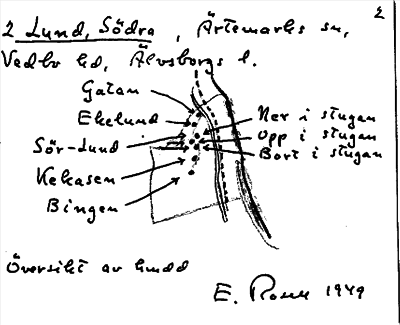 2
2 Lund, Södra, Ärtemarks sn,
Vedbo hd, Älvsborgs l.
Gatan
Ekelund
Sör-Lund
Kekasen
Bingen
Ner i stugan
Opp i stugan
Bort i stugan
Översikt av
E. 1949